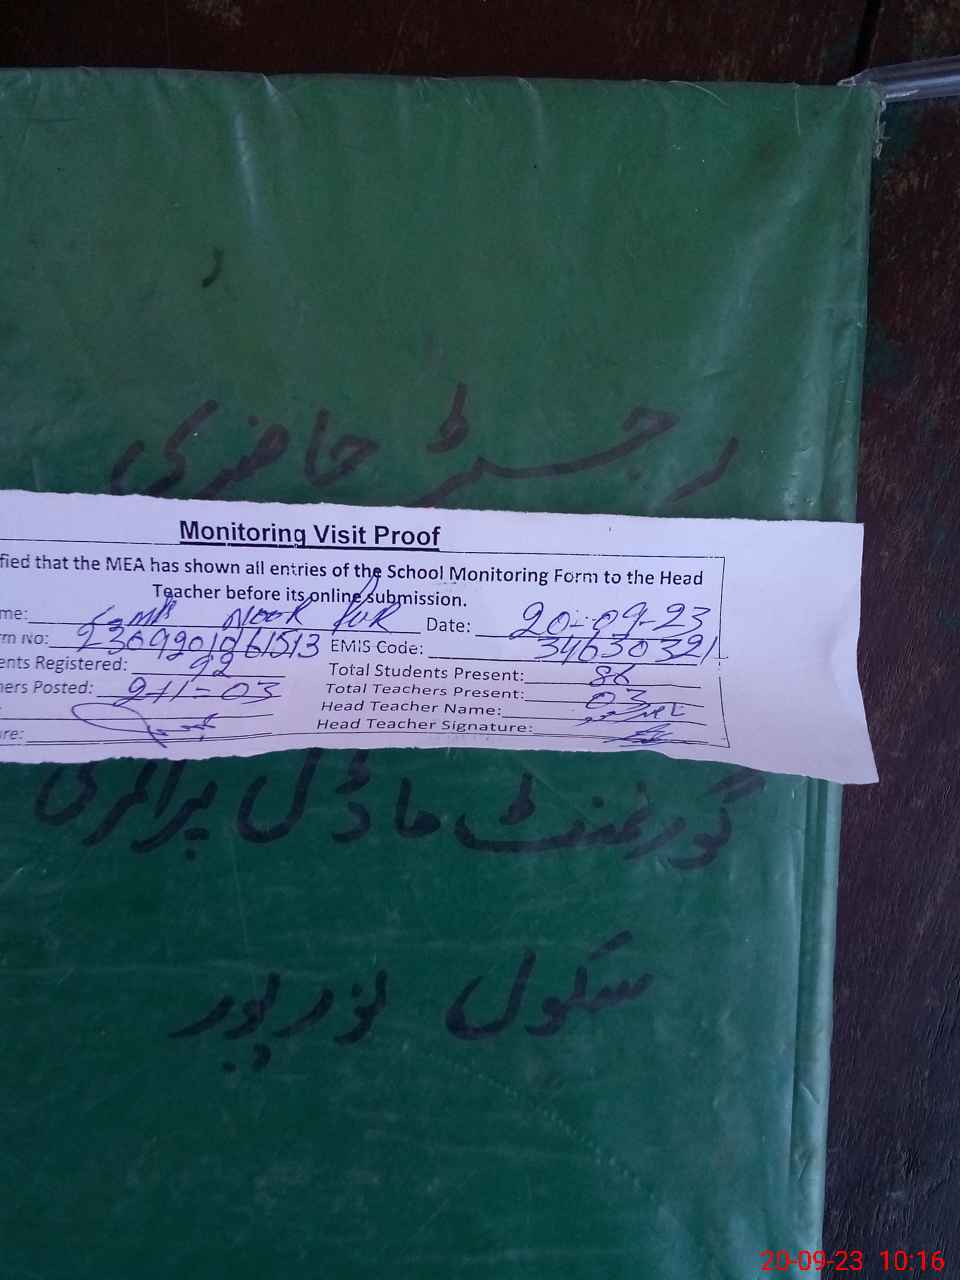 رجسٹر حاضری
Monitoring Visit Proof
fied that the MEA has shown all entries of the School Monitoring Form to the Head
Teacher before its online submission.
me: GMPS NOOR PUR Date: 20-09-23
rm No: EMIS Code: 34630321
ents Registered: 92 Total Students Present: 86
hers Posted: 2+1=03 Total Teachers Present: 03
Head Teacher Name:
re: Head Teacher Signature:
گورنمنٹ ماڈل پرائمری
سکول نورپور
20-09-23 10:16